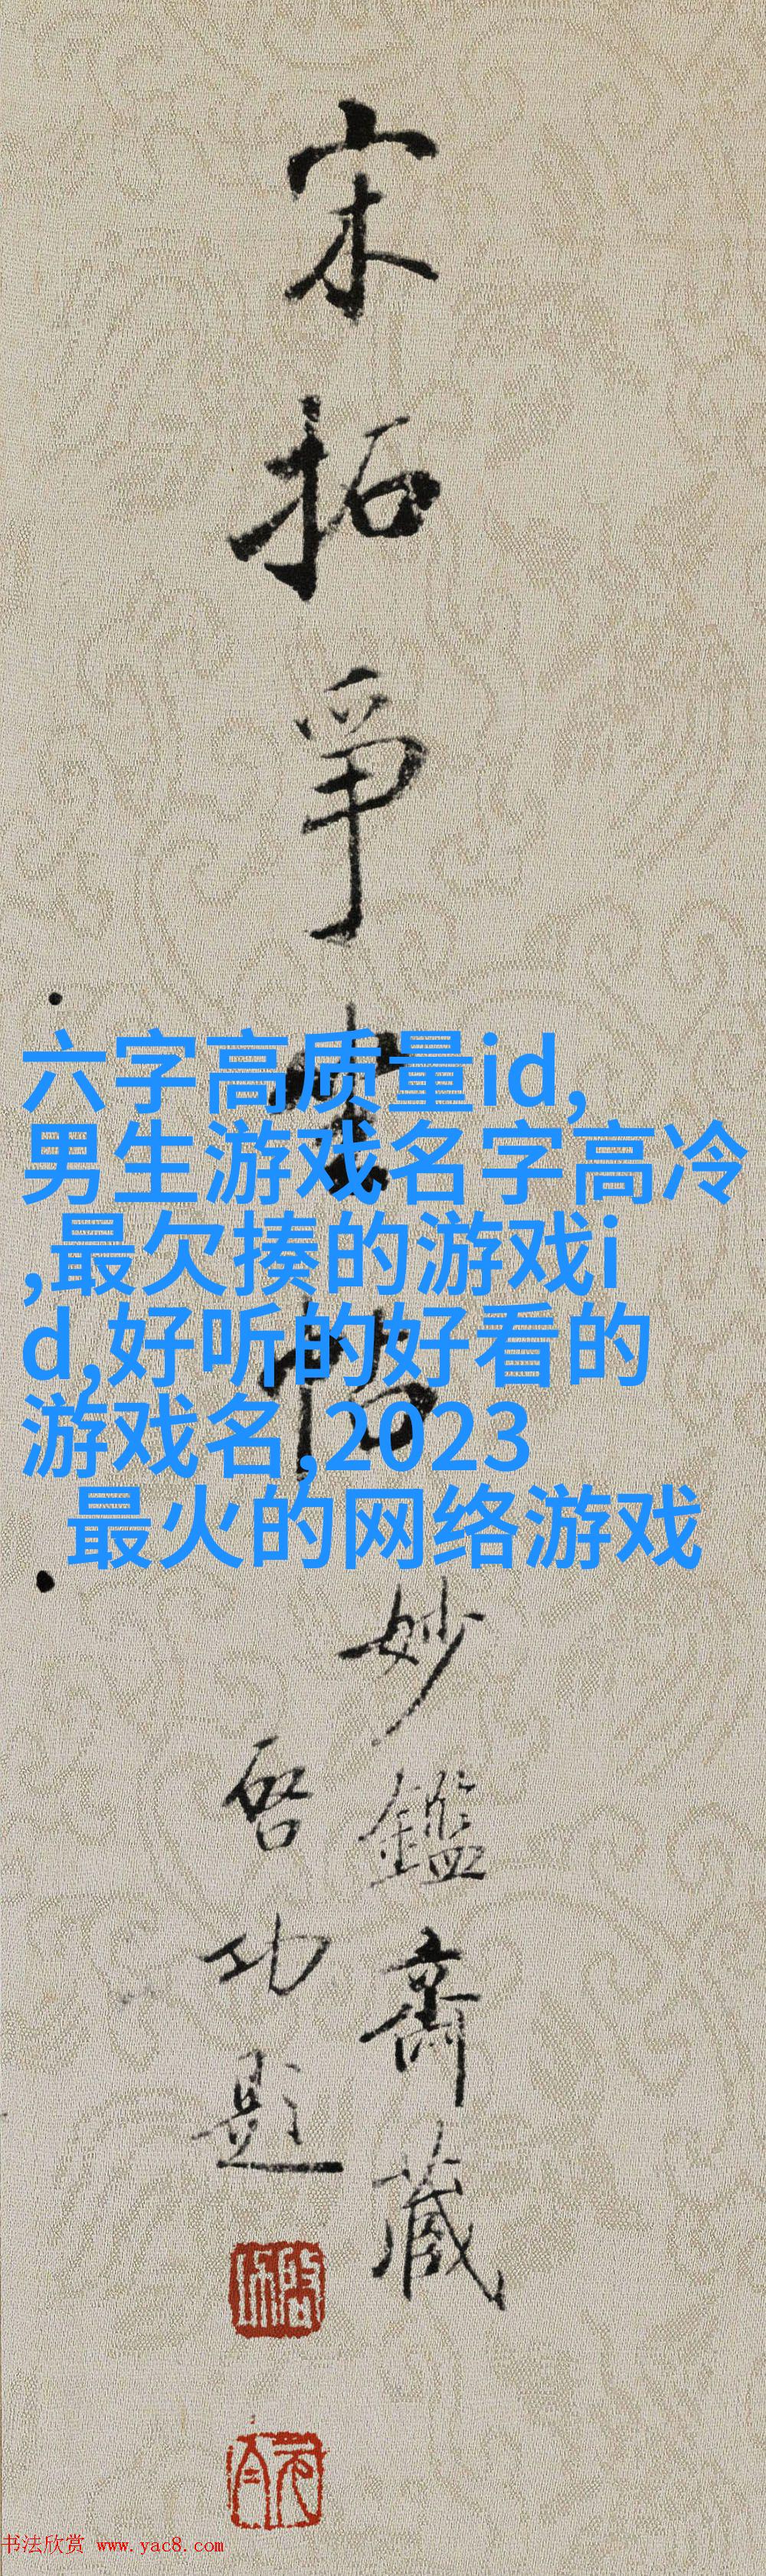 宋拓爭坐位帖
六字高质量id,
男生游戏名字高冷
,最欠揍的游戏i
d,好听的好看的
游戏名,2023
最火的网络游戏
妙鑑齋藏
启功題
启功
元白
书法欣赏 www.yac8.com